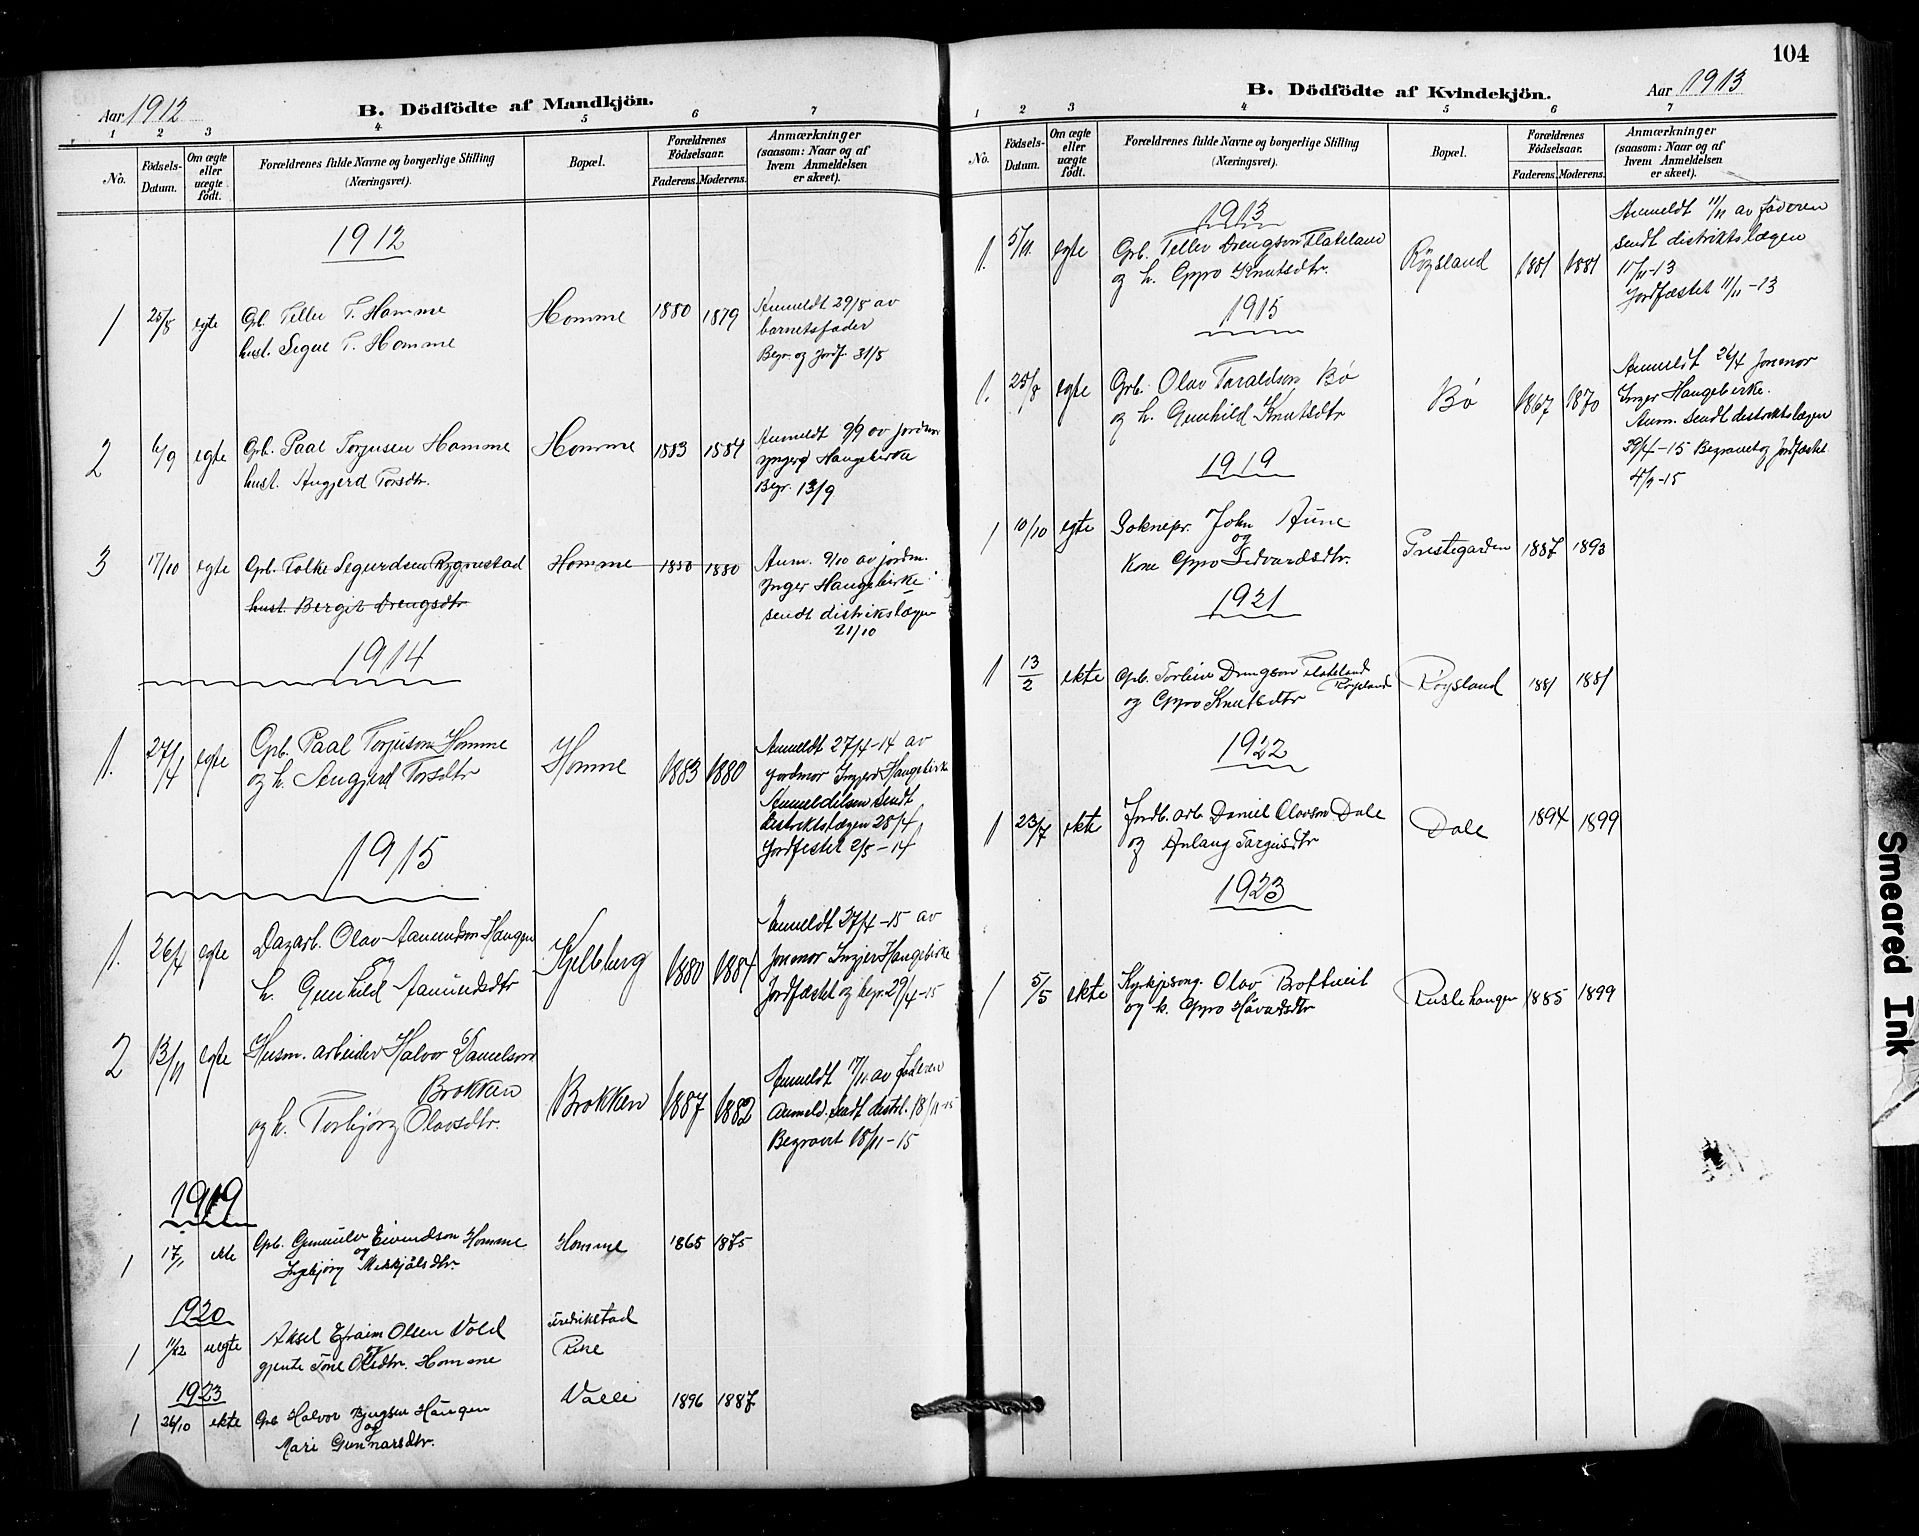 104
Aar 1912
B. Dödfödte af Mandkjön.
1 2 3 4 5 6 7
No.
Fødsels-Datum.
Om ægte eller uægte født.
Forældrenes fulde Navne og borgerlige Stilling
(Næringsvei).
Bopæl.
Forældrenes Fødselsaar.
Faderens. Moderens.
Anmærkninger
(saasom: Naar og af
hvem Anmeldelsen
er skeet).
1912
1 25/5 egte Gb. Tellev T. Homme Homme 1880 1879 Anmeldt 29/5 av
hust. Signe T. Homme barnetsfader
Begr. og Jordf. 31/5
2 6/9 egte Grb. Paal Torjusen Homme Homme 1883 1884 Anmeldt 9/9 av jordm.
hust. Angjerd Torsdtr. Haugebirke
Begr. 13/9
3 17/10 egte Gb. Folke Segurdsen Rygnestad Homme 1880 Anm. 9/10 av jordm.
hust. Bergit Drengsdtr Inger Haugebirke
sendt distrikslægen
21/10
1914
1. 27/4 egte Gb. Paal Torjuson Homme Homme 1883 1880 Anmeldt 27/4-14 av
og h. Angjerd Torsdtr jordmor Ingjerd Haugebirke
Anmeldelsen sendt
distriktslægen 28/4
Jordfestet 2/5-14
1915
1. 26/4 egte Dagarb. Olav Aamundson Haugen Kjelleberg 1880 1884 Anmeldt 27/4-15 av
og
h. Gunhild Aamundsdtr Jormor Ingjer Haugebirke
Jordfæstet og begr. 29/4-15
2 13/11 egte Husm. arbeider Halvor Danielson
Brokken Brokken 1887 1882 Anmeldt 17/11 av faderen
og h. Torbjørg Olavsdtr. Anmeld. sendt distrl. 18/11-15
Begravet 18/11-15
1919
1 17/1 ekte Gb. Gunnulv Eivindson Homme Homme 1865 1875
og
Ingebjørg Mikkjålsdtr.
1920
1 11/12 uegte Aksel Efraim Olsen Vold Fredrikstad
og
gjente Tone Olsdtr. Homme
1923
1 26/10 ekte Gb Halvor Bjugsen Haugen Valle 1896 1887
og
Mari Gunnarsdtr.
B. Dödfödte af Kvindekjön.
Aar 1913
1 2 3 4 5 6 7
No.
Fødsels-Datum.
Om ægte eller uægte født.
Forældrenes fulde Navne og borgerlige Stilling
(Næringsvei).
Bopæl.
Forældrenes Fødselsaar.
Faderens. Moderens.
Anmærkninger
(saasom: Naar og af
hvem Anmeldelsen
er skeet).
1913
1. 5/11. egte Grb. Tellev Drengson Flateland Røysland 1881 1881 Anmeldt 11/11 av faderen
og h. Gyro Knutsdtr. sendt distriktslægen
11/11-13
Jordfæstet 11/11-13
1915
1. egte Grb. Olav Taraldson Bø Bø 1867 1870 Anmeldt 26/4 Jormor
og h. Gunhild Knutsdtr Inger Haugebirke.
Anm. sendt distriktslægen
29/4-15 Begravet og Jordfæstet
1919
1 10/10 egte Soknepr. John Aune Prestegarden 1887 1893
og
Kone Gyro Sidvardsdtr.
1921
1 13/2 ekte Gb. Drengson Flateland Røysland Røysland 1881 1881
og Gyro Knutsdtr
1922
1 23/7 ekte Jordb. arb. Daniel Olavson Dale Dale 1894 1899
og Anlaug Targjusdtr
1923
1 5/5 ekte Kyrkjesong. Olav Brottveit Ruslehaugen 1885 1899
og h. Gyro Håvardsdtr
Smeared Ink